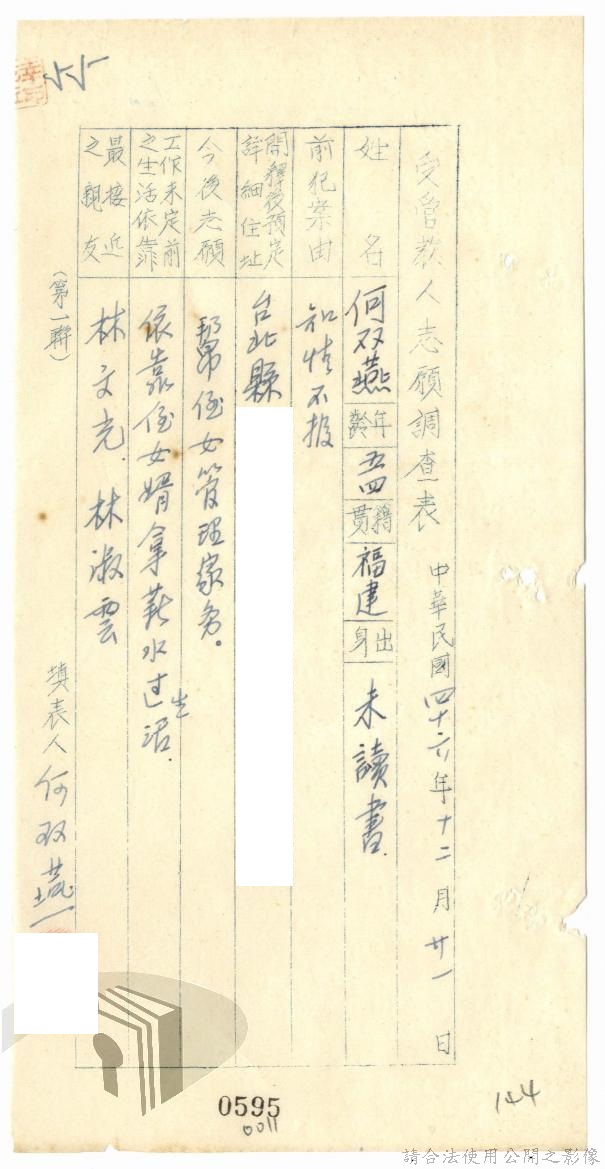 受管教人志願調查表
中華民國四十六年十二月廿一日
姓名 何双燕 年齡 五四 籍貫 福建 出身 未讀書.
前犯案由 知情不报
開釋後預定詳細住址 台北縣
今後志願 幫侄女管理家务。
工作未定前之生活依靠 依靠侄女婿拿薪水过生活.
最接近之親友 林文克.林淑雲
(第一聯)
填表人 何双燕
55
144
0595
0011
請合法使用公開之影像